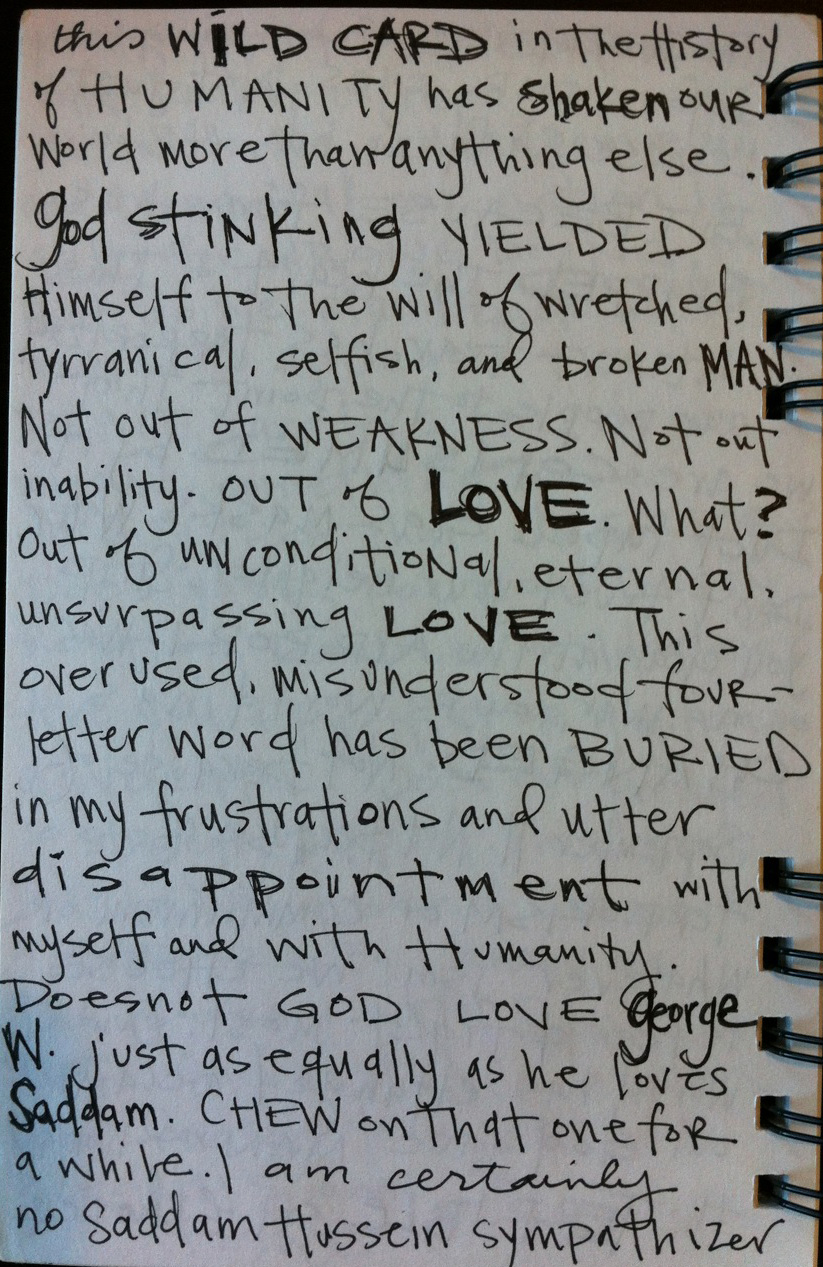 this WILD CARD in the History
of HUMANITY has shaken our
world more than anything else.
god stinking YIELDED
Himself to the will of wretched,
tyrranical, selfish, and broken MAN.
Not out of WEAKNESS. Not out
inability. OUT of LOVE. What?
Out of unconditional, eternal,
unsurpassing LOVE. This
over used, misunderstood four-
letter word has been BURIED
in my frustrations and utter
disappointment with
myself and with Humanity.
Does not GOD LOVE George
W. just as equally as he loves
Saddam. CHEW on that one for
a while. I am certainly
no Saddam Hussein sympathizer